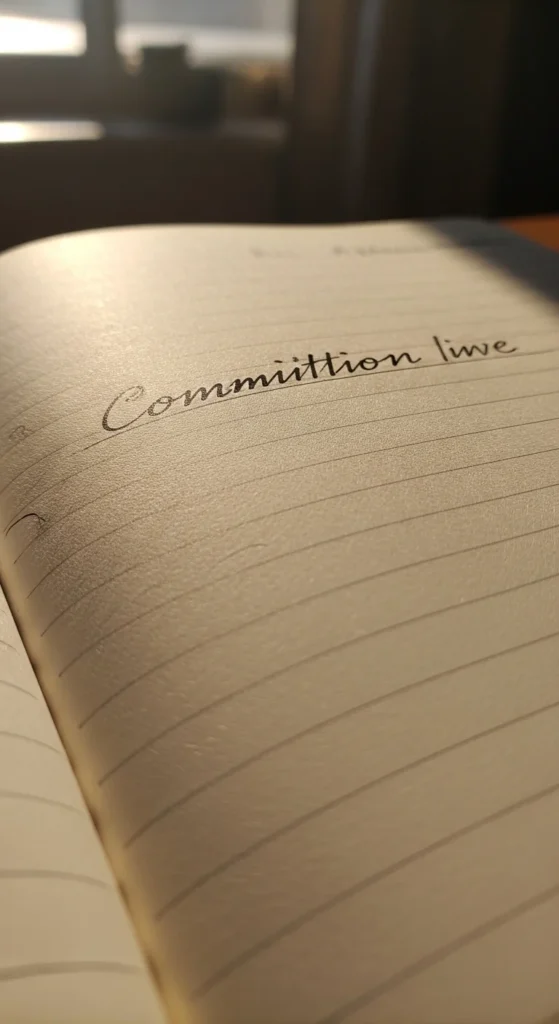 Commiittion liwe